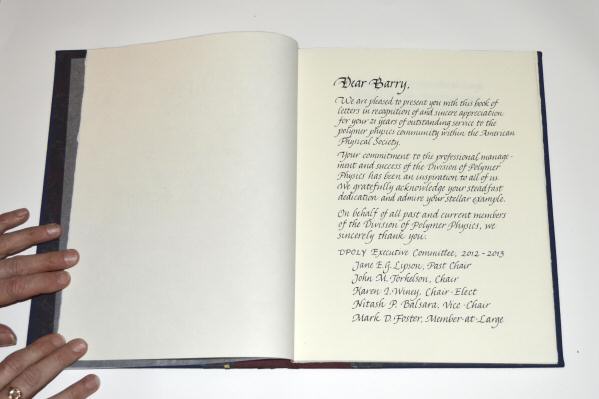 Dear Barry,
We are pleased to present you with this book of
letters in recognition of and sincere appreciation
for your 21 years of outstanding service to the
polymer physics community within the American
Physical Society.
Your commitment to the professional manage-
ment and success of the Division of Polymer
Physics has been an inspiration to all of us.
We gratefully acknowledge your steadfast
dedication and admire your stellar example.
On behalf of all past and current members
of the Division of Polymer Physics, we
sincerely thank you.
DPOLY Executive Committee, 2012-2013
Jane E.G. Lipson, Past Chair
John M. Torkelson, Chair
Karen I. Winey, Chair-Elect
Nitash P. Balsara, Vice-Chair
Mark D. Foster, Member-at-Large